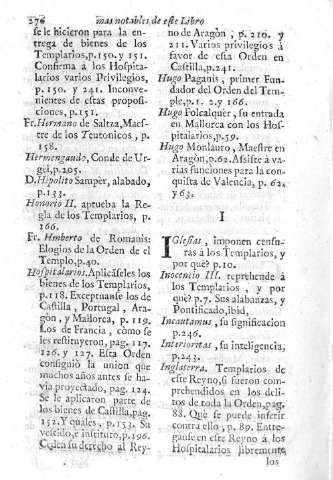 270 mas notables de este Libro
se le hicieron para la en-
trega de bienes de los
Templarios, p.150. y 151.
Confirma à los Hospita-
larios varios Privilegios,
p. 150. y 241. Inconve-
nientes de estas proposi-
ciones, p.151.
Fr. Hermano de Saltza, Maes-
tre de los Teutonicos, p.
158.
Hermengaudo, Conde de Ur-
gel, p.205.
D. Hipolito Samper, alabado,
p.133.
Honorio II. aprueba la Re-
gla de los Templarios, p.
166.
Fr. Humberto de Romanis:
Elogios de la Orden de el
Templo, p.40.
Hospitalarios. Aplicaseles los
bienes de los Templarios,
p.118. Exceptuanse los de
Castilla, Portugal, Ara-
gòn, y Mallorca, p. 119.
Los de Francia, còmo se
les restituyeron, pag. 117.
126. y 127. Esta Orden
consiguiò la union que
muchos años antes se ha-
via proyectado, pag. 124.
Se le aplicaron parte de
los bienes de Castilla, pag.
152. Y quales, p. 153. Su
vestido, è instituto, p.196.
Ceden su derecho al Rey-
no de Aragòn, p. 210. y
211. Varios privilegios à
favor de esta Orden en
Castilla, p.241.
Hugo Paganis, primer Fun-
dador del Orden del Tem-
ple, p.1. 2. y 166.
Hugo Folcalquer, su entrada
en Mallorca con los Hos-
pitalarios, p.59.
Hugo Monlauro, Maestre en
Aragòn, p.62. Assiste à va-
rias funciones para la con-
quista de Valencia, p. 62.
y 63.
I
Iglesias, imponen censu-
ras à los Templarios, y
por què? p.10.
Inocencio III. reprehende à
los Templarios, y por
què? p.7. Sus alabanzas, y
Pontificado, ibid,
Incautamus, su significacion
p.246.
Interioritas, su inteligencia,
p.243.
Inglaterra. Templarios de
este Reyno, si fueron com-
prehendidos en los deli-
tos de toda la Orden, pag.
88. Què se puede inferir
contra ello, p. 89. Entre-
ganse en este Reyno à los
Hospitalarios libremente
los